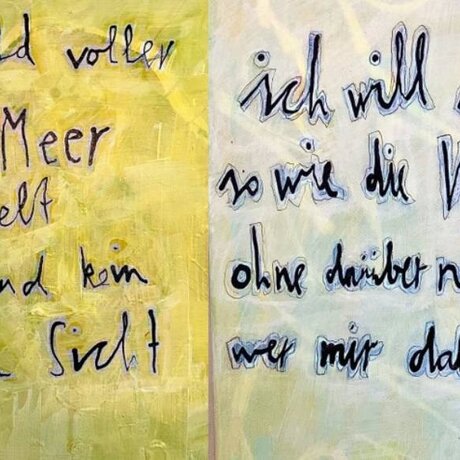 ld voller
Meer
elt
nd kein
Sicht
ich will
so wie die V
ohne darüber n
wer mir da